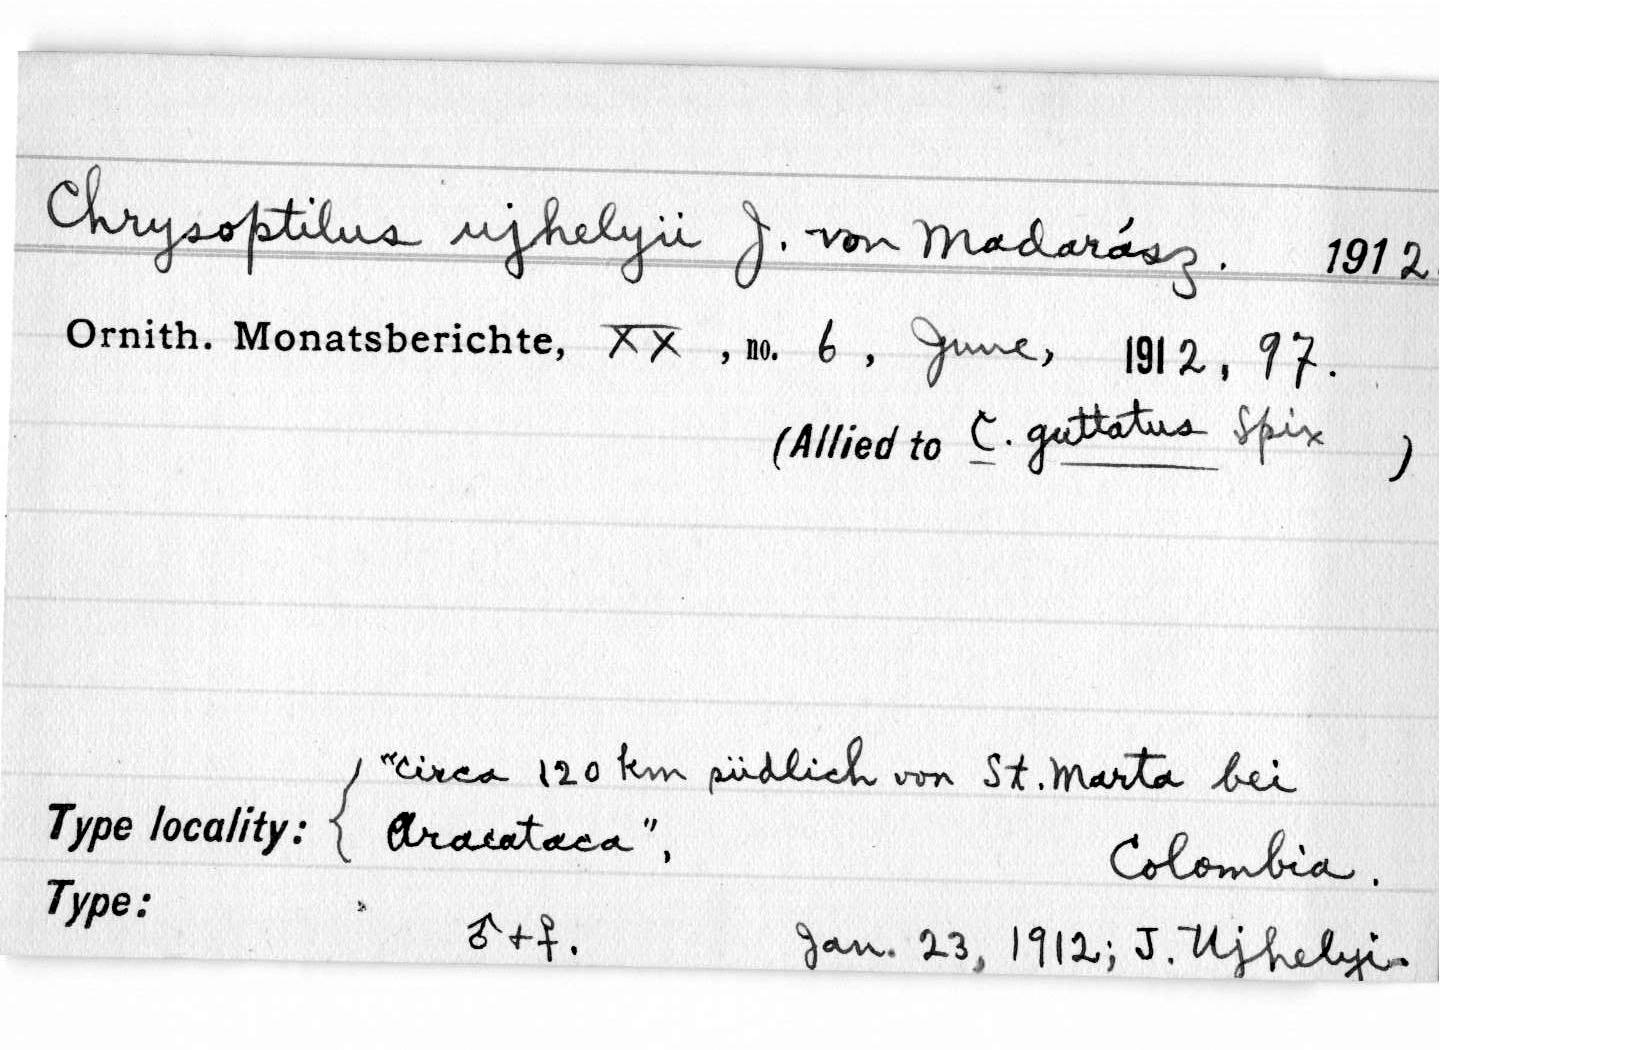 Chrysoptilus ujhelyii J. von Madarász. 1912.
Ornith. Monatsberichte, XX, no. 6, June, 1912, 97.
(Allied to C. guttatus Spix )
"circa 120 km südlich von St. Marta bei
Type locality: { Aracataca", Colombia.
Type: ♂ + ♀. Jan. 23, 1912; J. Ujhelyi.